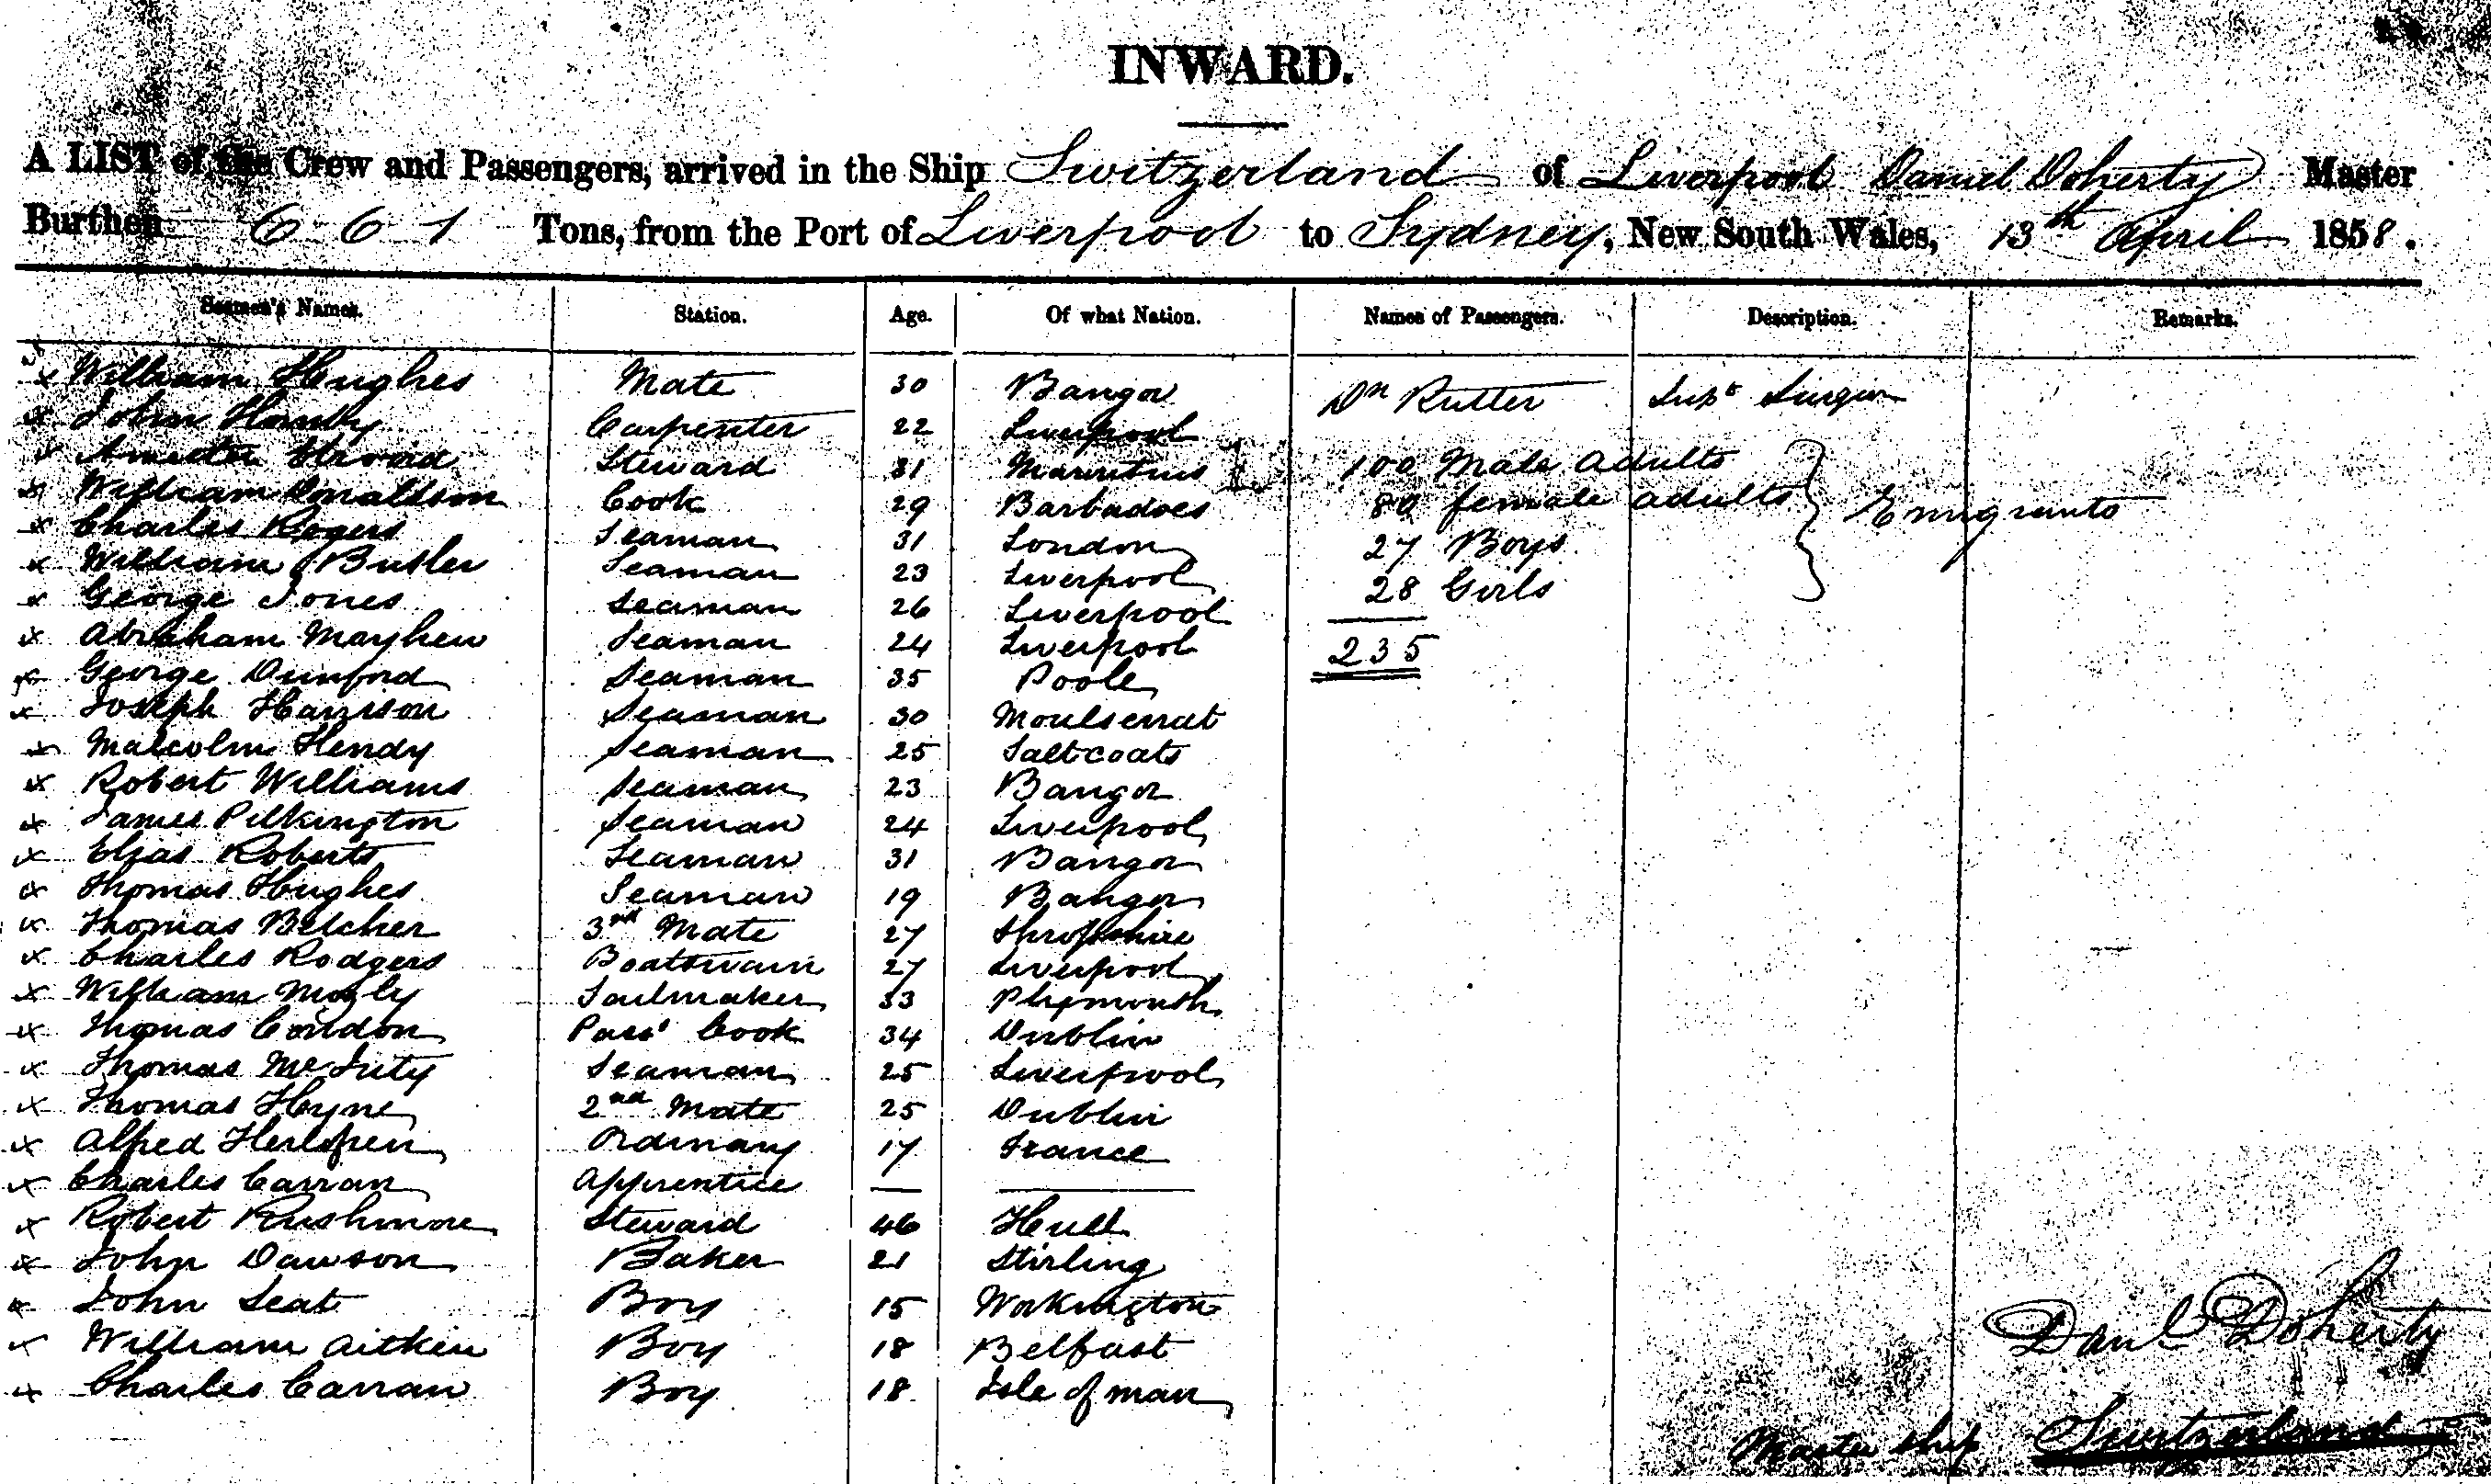 INWARD.
A LIST of the Crew and Passengers, arrived in the Ship Switzerland of Liverpool Daniel Doherty Master
Burthen 661 Tons, from the Port of Liverpool to Sydney, New South Wales, 13th April 1858.
Seamen's Names. Station. Age. Of what Nation. Names of Passengers. Description. Remarks.
William Hughes Mate 30 Bangor Dr Rutter Supt Surgeon
John Carpenter 22 Liverpool
Steward 31 Mauritius 100 Male Adults
William Donaldson Cook 29 Barbadoes 80 female adults Emigrants
Charles Rogers Seaman 31 London 27 Boys
William Butler Seaman 23 Liverpool 28 Girls
George Jones Seaman 26 Liverpool
Abraham Mayhew Seaman 24 Liverpool 235
George Dunford Seaman 35 Poole
Joseph Harrison Seaman 30 Moulserrat
Malcolm Hendy Seaman 25 Saltcoats
Robert Williams Seaman 23 Bangor
James Pilkington Seaman 24 Liverpool
Elias Roberts Seaman 31 Bangor
Thomas Hughes Seaman 19 Bangor
Thomas Belcher 3rd Mate 27 Shropshire
Charles Rodgers Boatswain 27 Liverpool
William Sailmaker 33 Plymouth
Thomas Condon Pass' Cook 34 Dublin
Thomas Seaman 25 Liverpool
Thomas Hyne 2nd Mate 25 Dublin
Alfred Ordinary 17 France
Charles Carran Apprentice —
Robert Rushmore Steward 46 Hull
John Dawson Baker 21 Stirling
John Seat Boy 15 Workington
William Aitkin Boy 18 Belfast
Charles Carran Boy 18 Isle of man
Danl Doherty
Master Ship Switzerland